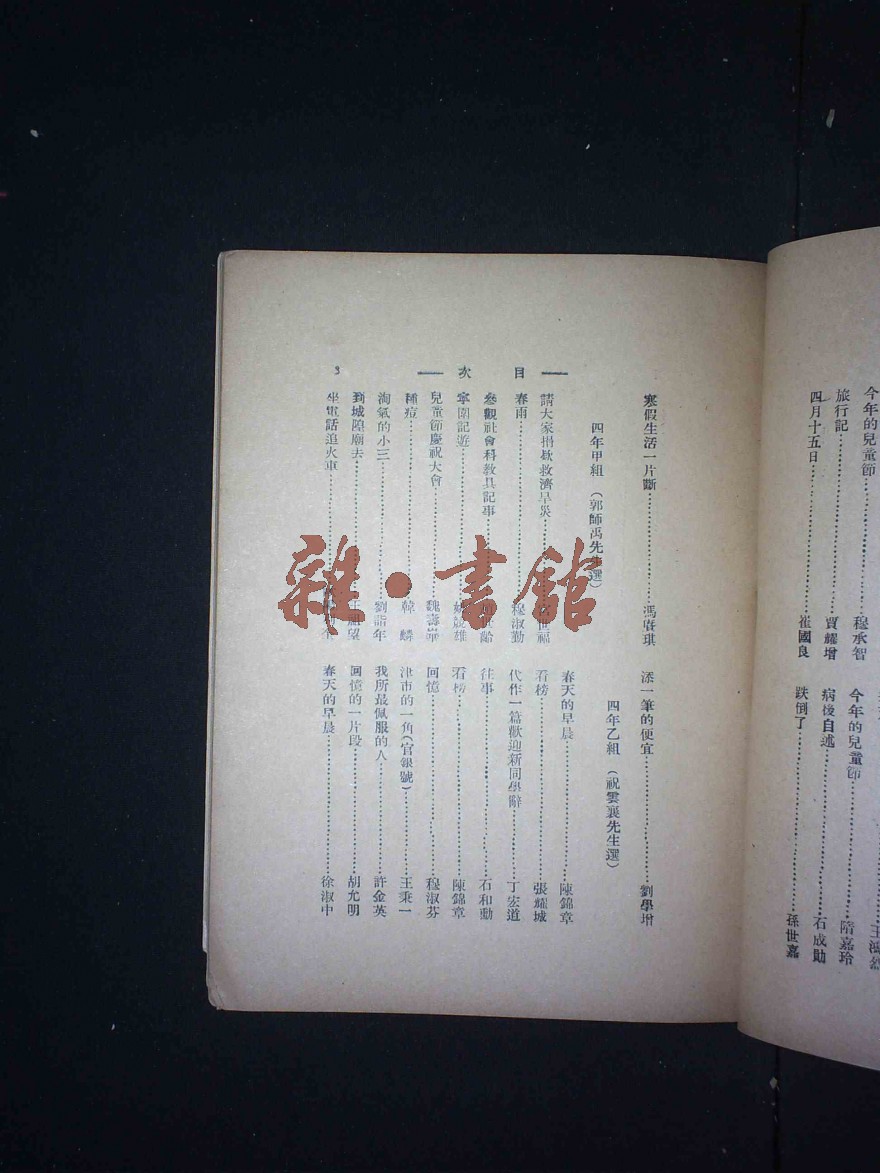 王鴻
今年的兒童節……穆承智 今年的兒童節……隋嘉玲
旅行記……賈耀增 病後自述……石成勛
四月十五日……崔國良 跌倒了……孫世嘉
寒假生活一片斷……馮賡琪 添一筆的便宜……劉學增
四年甲組 (郭師禹先生選) 四年乙組 (祝雲襄先生選)
春天的早晨……陳錦章
請大家捐欵救濟旱災……世福 看榜……張耀城
春雨……穆淑勤 代作一篇歡迎新同學辭……丁宏道
參觀社會科教具記事……世齡 往事……石和勳
寧園記遊……兢雄 看榜……陳錦章
兒童節慶祝大會……魏壽 回憶……穆淑芬
種痘……韓麟 津市的一角(官銀號)……王秉一
淘氣的小三……劉詣年 我所最佩服的人……許金英
到城隍廟去……王祖望 回憶的一片段……胡允明
坐電話追火車……奎 春天的早晨……徐淑中
— 目次 —
3
雜·書館